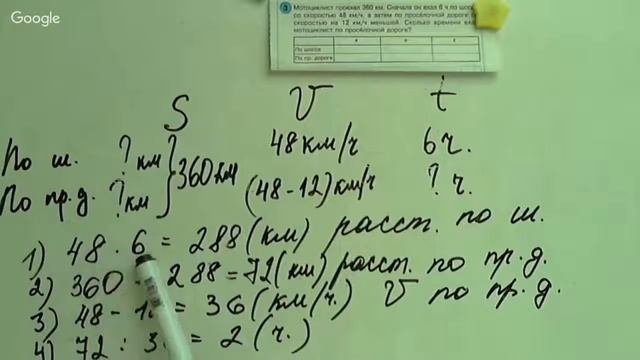 Google
3 Мотоциклист проехал 360 км. Сначала он ехал 6 ч по шоссе
со скоростью 48 км/ч, а затем по просёлочной дороге со
скоростью на 12 км/ч меньшей. Сколько времени ехал
мотоциклист по просёлочной дороге?
По шоссе
По пр. дороге
S V t
По ш. ? км 48 км/ч 6 ч.
360 км
По пр.д. ? км (48-12) км/ч ? ч.
1) 48 · 6 = 288 (км) расст. по ш.
2) 360 - 288 = 72 (км) расст. по пр.д.
3) 48 - = 36 (км/ч.) V по пр.д.
4) 72 : 3 = 2 (ч.)